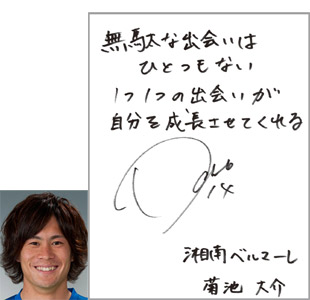 無駄な出会いは
ひとつもない
1つ1つの出会いが
自分を成長させてくれる
14
湘南ベルマーレ
菊池 大介